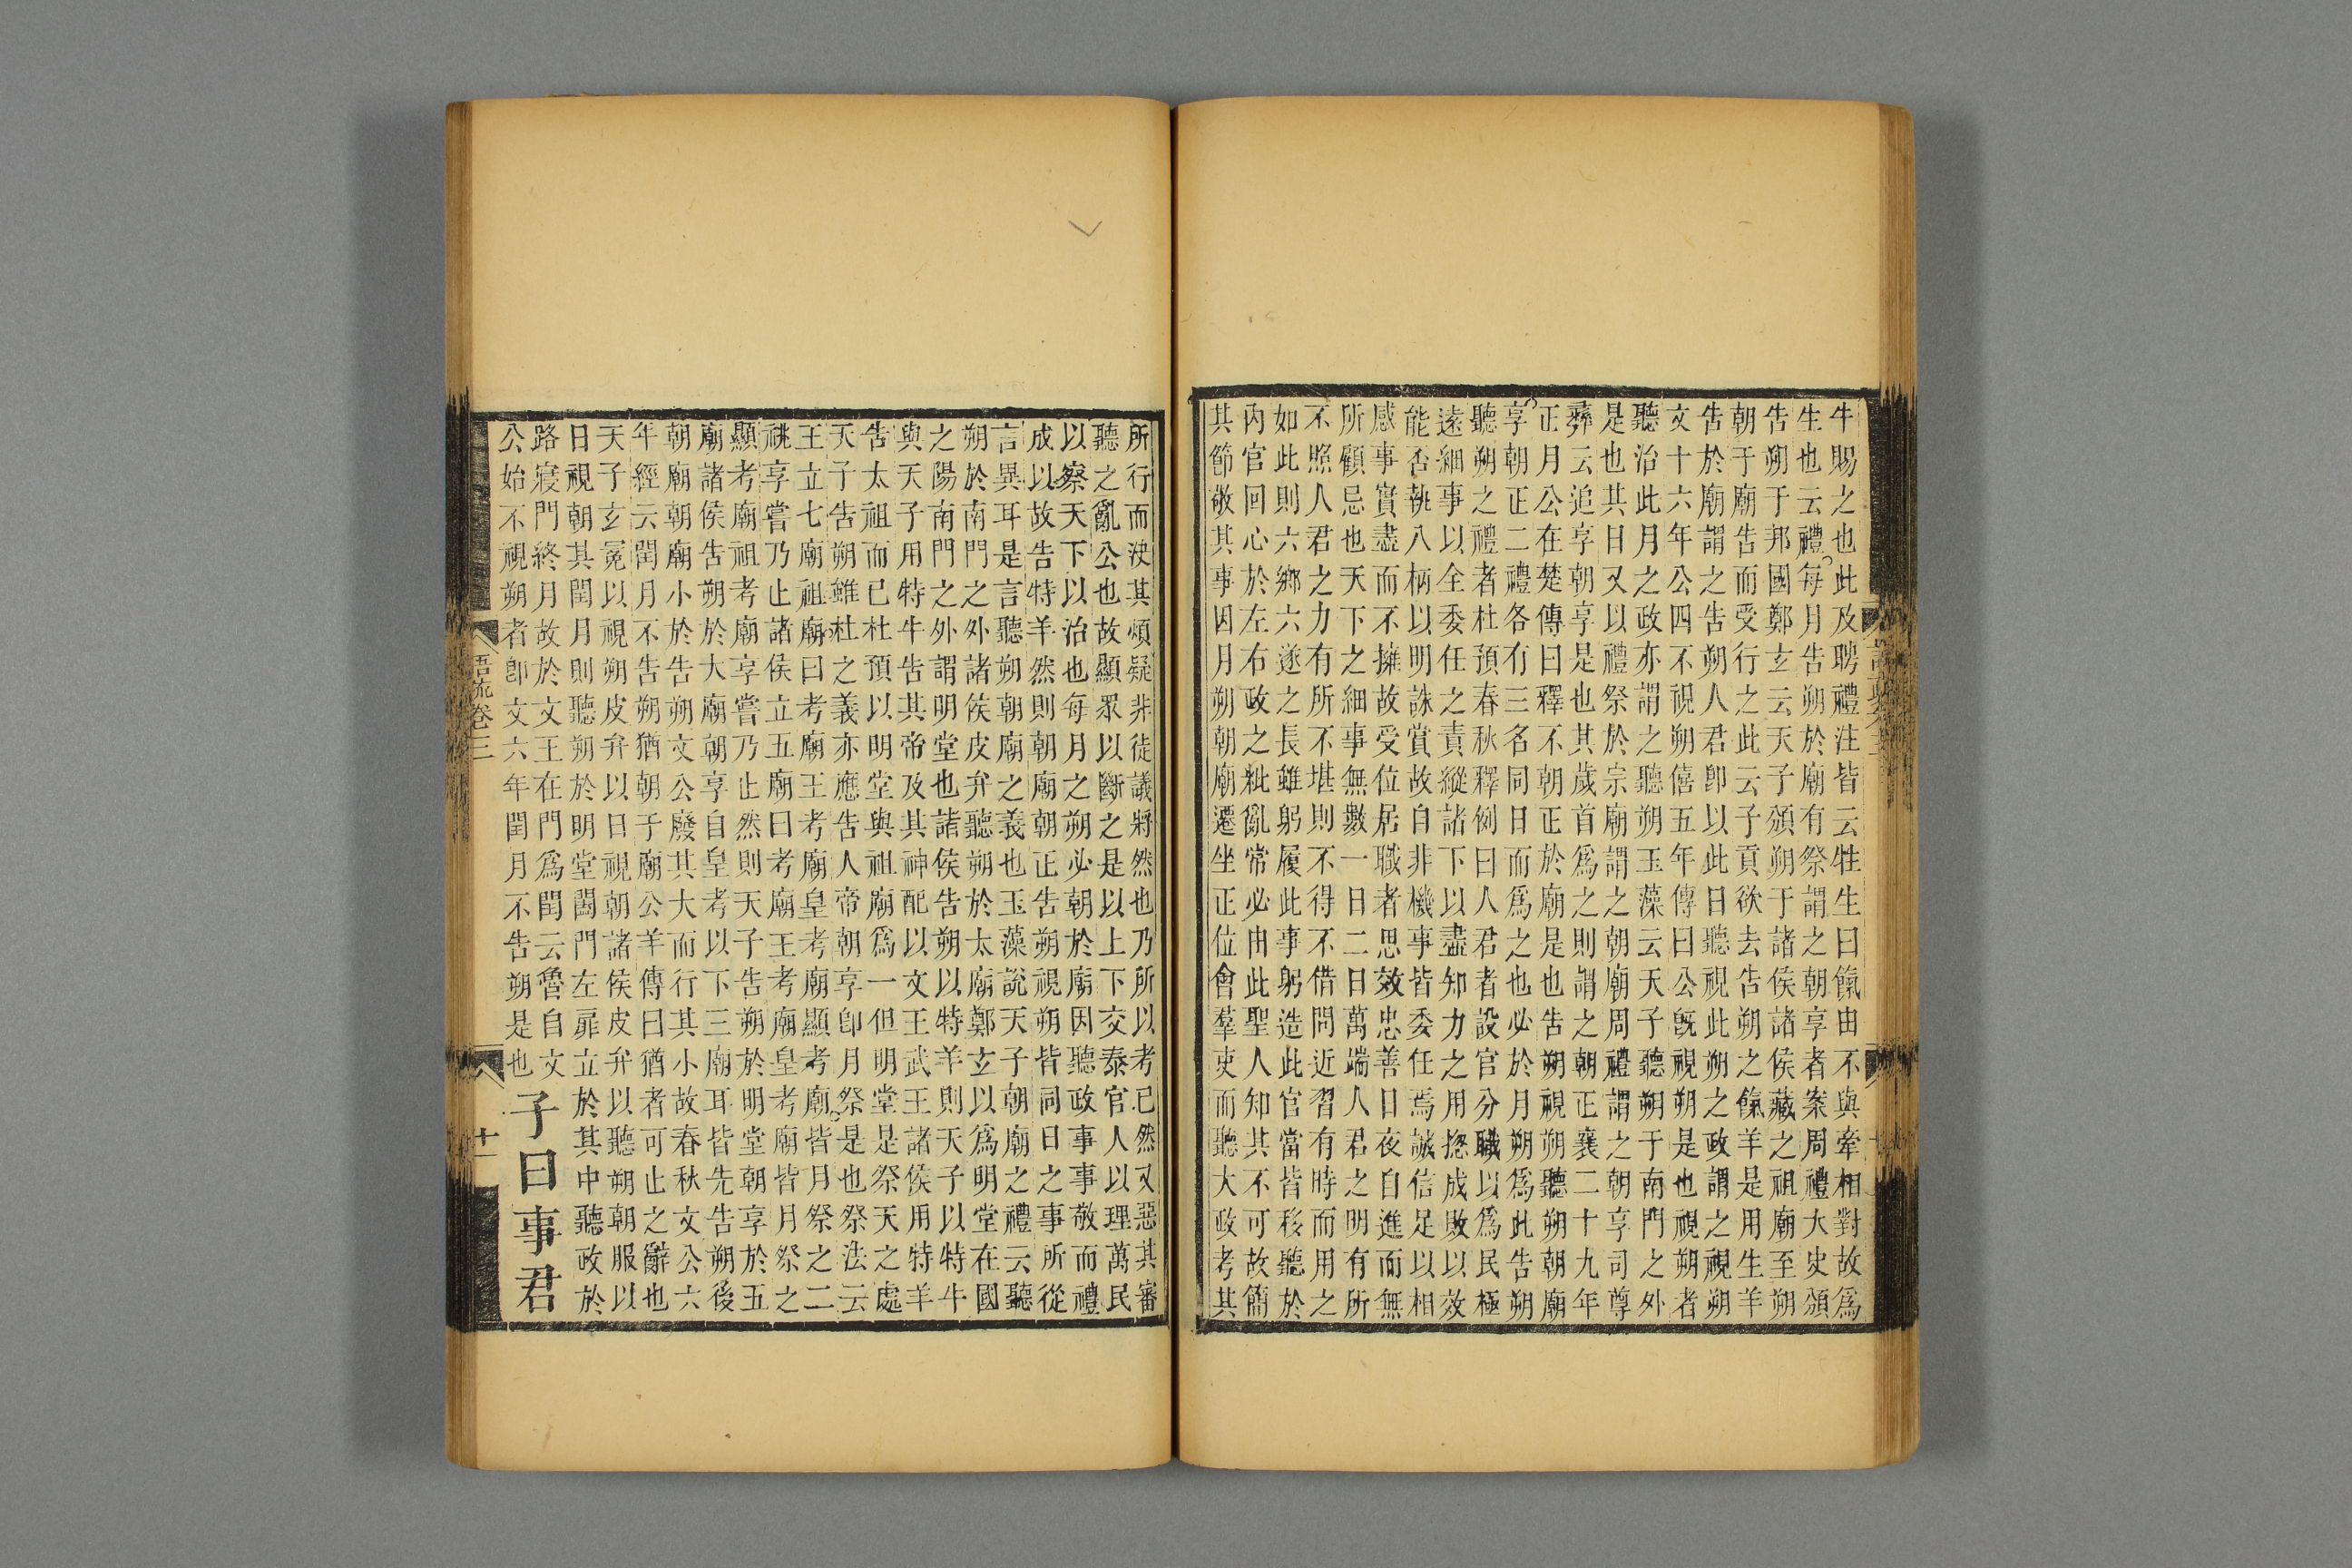 牛賜之也此及聘禮注皆云牲生曰餼由不與牽相對故爲
生也云禮每月告朔於廟有祭謂之朝享者案周禮大史頒
告朔于邦國鄭玄云天子頒朔于諸侯諸侯藏之祖廟至朔
朝于廟告而受行之此云子貢欲去告朔之餼羊是用生羊
告於廟謂之告朔人君即以此日聽視此朔之政謂之視朔
文十六年公四不視朔僖五年傳曰公旣視朔是也視朔者
聽治此月之政亦謂之聽朔玉藻云天子聽朔于南門之外
是也其日又以禮祭於宗廟謂之朝廟周禮謂之朝享司尊
彝云追享朝享是也其歲首爲之則謂之朝正襄二十九年
正月公在楚傳曰釋不朝正於廟是也告朔視朔聽朔朝廟
享朝正二禮各有三名同日而爲之也必於月朔爲此告朔
聽朔之禮者杜預春秋釋例曰人君者設官分職以爲民極
遠細事以全委任之責縱諸下以盡知力之用揔成敗以效
能否執八柄以明誅賞故自非機事皆委任焉誠信足以相
感事實盡而不擁故受位居職者思效忠善日夜自進而無
所顧忌也天下之細事無數一日二日萬端人君之明有所
不照人君之力有所不堪則不得不借問近習有時而用之
如此則六鄉六遂之長雖躬履此事躬造此官當皆移聽於
內官回心於左右政之秕亂常必由此聖人知其不可故簡
其節敬其事因月朔朝廟遷坐正位會羣吏而聽大政考其
所行而決其煩疑非徒議將然也乃所以考已然又惡其審
聽之亂公也故顯眾以斷之是以上下交泰官人以理萬民
以察天下以治也每月之朔必朝於廟因聽政事事敬而禮
成以故告特羊然則朝廟朝正告朔視朔皆同日之事所從
言異耳是言聽朔朝廟之義也玉藻說天子朝廟之禮云聽
朔於南門之外諸侯皮弁聽朔於太廟鄭玄以爲明堂在國
之陽南門之外謂明堂也諸侯告朔以特羊則天子以特牛
與天子用特牛告其帝及其神配以文王武王諸侯用特羊
告太祖而已杜預以明堂與祖廟爲一但明堂是祭天之處
天子告朔雖杜之義亦應告人帝朝享即月祭是也祭法云
王立七廟祖廟曰考廟王考廟皇考廟顯考廟皆月祭之二
祧享嘗乃止諸侯立五廟曰考廟王考廟皇考廟皆月祭之
顯考廟祖考廟享嘗乃止然則天子告朔於明堂朝享於五
廟諸侯告朔於大廟朝享自皇考以下三廟耳皆先告朔後
朝廟朝廟小於告朔文公廢其大而行其小故春秋文公六
年經云閏月不告朔猶朝子廟公羊傳曰猶者可止之辭也
天子玄冕以視朔皮弁以日視朝諸侯皮弁以聽朔朝服以
日視朝其閏月則聽朔於明堂闔門左扉立於其中聽政於
路寢門終月故於文王在門爲閏云魯自文
公始不視朔者即文六年閏月不告朔是也
子曰事君
語疏卷三
十一